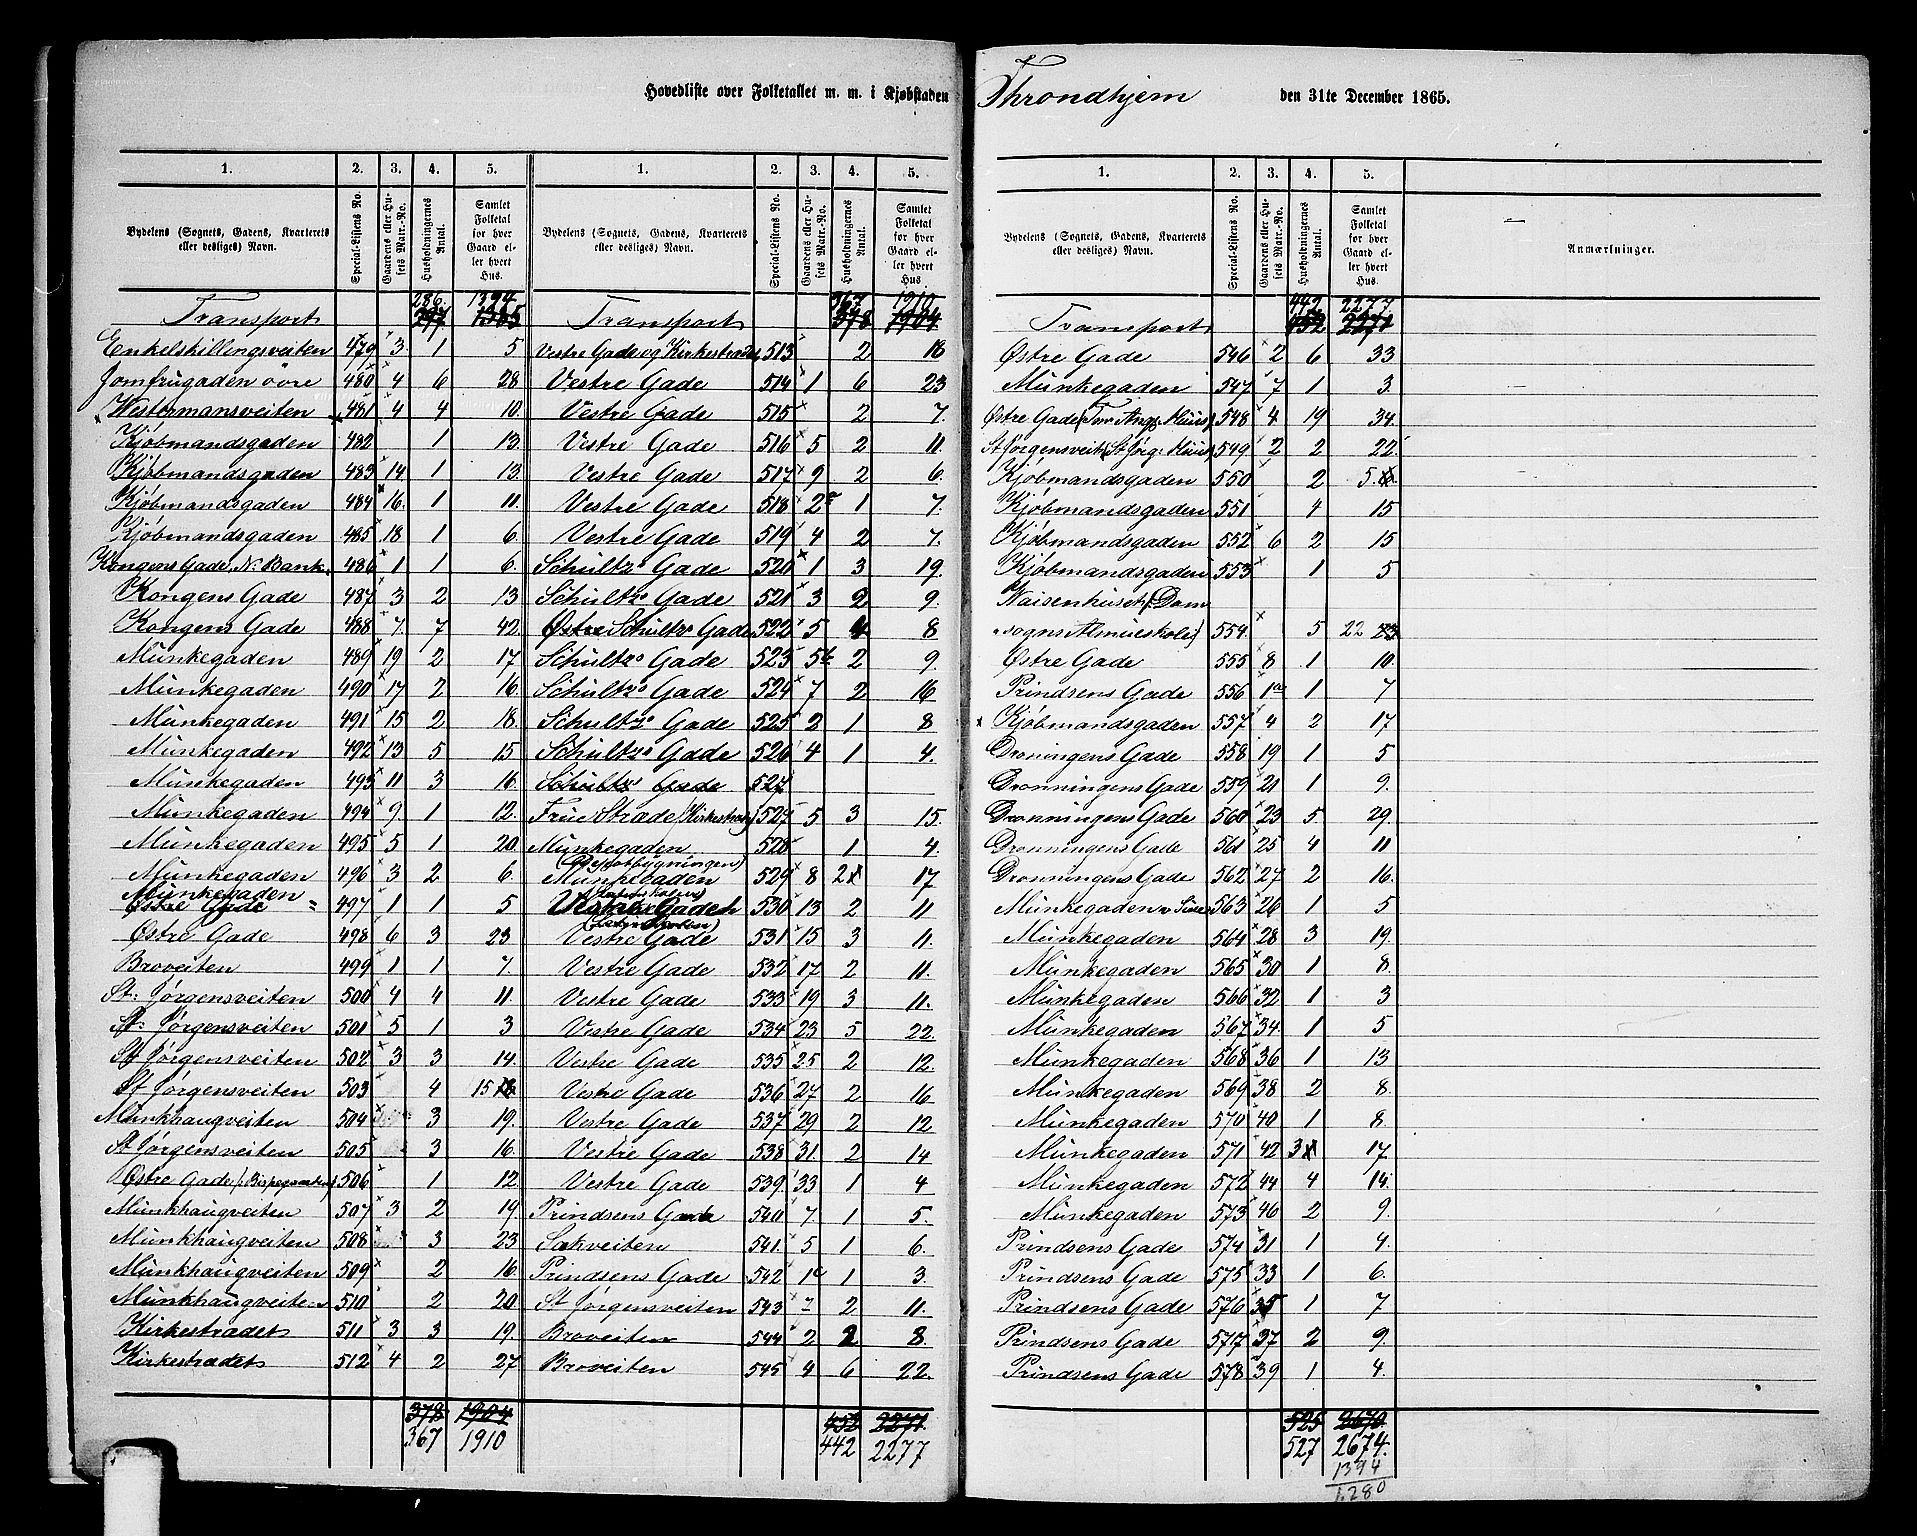 Hovedliste over Folketallet m. m. i Kjøbstaden Throndhjem den 31te December 1865.
1. 2. 3. 4. 5. 1. 2. 3. 4. 5.
Bydelens (Sognets, Gadens, Kvarterets eller desliges) Navn. Special-Listens No. Gaardens eller Husets Matr.-No. Husholdningernes Antal. Samlet Folketal for hver Gaard eller hvert Hus. Bydelens (Sognets, Gadens, Kvarterets eller desliges) Navn. Special-Listens No. Gaardens eller Husets Matr.-No. Husholdningernes Antal. Samlet Folketal for hver Gaard eller hvert Hus
286. 1394 367 1910
Transport 297 1385 Transport 378 1904
Enkelskillingsveiten 479 3 1 5 Vestre Gade og Kirkestrædet 513 2 18
Jomfrugaden övre 480 4 6 28 Vestre Gade 514 1 6 23
Westermansveiten 481 4 4 10. Vestre Gade 515 2 7.
Kjöbmandsgaden 482 1 13. Vestre Gade 516 5 2 11.
Kjöbmandsgaden 483 14 1 13. Vestre Gade 517 9 2 6.
Kjöbmandsgaden 484 16. 1 11. Vestre Gade 518 2 1 7.
Kjöbmandsgaden 485 18 1 6 Vestre Gade 519 4 2 7.
Kongens Gade, N. Bank. 486 1 1 6. Schultz's Gade 520 1 3 19.
Kongens Gade 487 3 2 13 Schultz's Gade 521 3 2 9.
Kongens Gade 488 7. 7 42. Östre Schultz's Gade 522 5 4 8
Munkegaden 489 19 2 17 Schultz's Gade 523 5b 2 9.
Munkegaden 490 17 2 16. Schultz's Gade 524 7 2 16
Munkegaden 491 15 2 18. Schultz's Gade 525 2 1 8
Munkegaden 492 13 5 15 Schultz's Gade 526 4 1 4.
Munkegaden 493 11 3 16. Schultz' Gade 527
Munkegaden 494 9 1 12. Frue Stræde (Kirkestræd) 527 5 3 15.
Munkegaden 495 5 1 20. Munkegaden 528 1 4.
(Depotbygningen)
Munkegaden 496 3 2 6. Munkegaden 529 8 2 17
Munkegaden
Östre Gade 497 1 1 5 Vestre Gaden 530 13 2 11
Östre Gade 498 6 3 23 Vestre Gade 531 15 3 11.
Broveiten 499 1 1 7. Vestre Gade 532 17 2 11.
St: Jörgensveiten 500 4 4 11. Vestre Gade 533 19 3 11.
St: Jörgensveiten 501 5 1 3 Vestre Gade 534 23 5 22.
St Jörgensveiten 502 3 3 14. Vestre Gade 535 25 2 12.
St Jörgensveiten 503 4 15 18 Vestre Gade 536 27 2 16
Munkhaugveiten 504 3 19. Vestre Gade 537 29 2 12
St Jörgensveiten 505 3 16. Vestre Gade 538 31. 2 14
Östre Gade /: Bispegaarden 506 1 12 Vestre Gade 539 33 1 4
Munkhaugveiten 507 3 2 19 Prindsens Gade 540 7 1 5.
Munkhaugveiten 508 3 23 Sukveiten 541. 5 1 6.
Munkhaugveiten 509 2 16 Prindsens Gade 542 1c 1 3.
Munkhaugveiten 510 2 20 St Jörgensveiten 543 7 2 11.
Kirkestrædet 511 3 3 19 Broveiten 544 2 2 8.
Kirkestrædet 512 4 2 27 Broveiten 545 4 6 22.
378 1904 452 2271.
367 1910 442 2277
1. 2. 3. 4. 5.
Bydelens (Sognets, Gadens, Kvarterets eller desliges) Navn. Special-Listens No. Gaardens eller Husets Matr.-No. Husholdningernes Antal. Samlet Folketal for hver Gaard eller hvert Hus Anmærkninger.
442 2277
Transport 452 2271
Östre Gade 546 2 6 33
Munkegaden 547 7 1 3.
Östre Gade (Tvr Ang. Huus) 548 4 19 34.
St Jörgensveit (St Jörg: Huus) 549 2 2 22.
Kjöbmandsgaden 550 2 5.
Kjöbmandsgaden 551 4 15
Kjöbmandsgaden 552 6 2 15
Kjöbmandsgaden 553 1 5
Waisenhuset (Dom
sogns Almueskole) 554. 5 22 23
Östre Gade 555 8 1 10.
Prindsens Gade 556 1a 1 7
Kjöbmandsgaden 557 4 2 17
Dronningens Gade 558 19 1 5
Dronningens Gade 559 21 1 9.
Dronningens Gade 560 23 5 29.
Dronningens Gade 561 25 4 11
Dronningens Gade 562 27 2 16.
Munkegaden 563 26 1 5
Munkegaden 564 28 3 19.
Munkegaden 565 30 1 8.
Munkegaden 566 32 1 3
Munkegaden 567 34. 1 5
Munkegaden 568 36 1 13
Munkegaden 569 38 2 8.
Munkegaden 570 40 1 8.
Munkegaden 571 42 3 17
Munkegaden 572 44 4 14.
Munkegaden 573 46 2 9.
Prindsens Gade 574 31 1 4.
Prindsens Gade 575 33 1 6.
Prindsens Gade 576 35 1 7
Prindsens Gade 577 37 2 9.
Prindsens Gade 578 39 1 4.
525 2670
527 2674.
1394
1.280